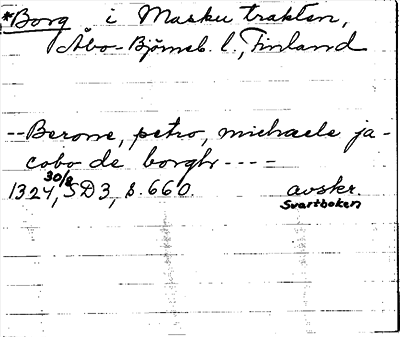 *Borg i Masku trakten,
Åbo-Björneb. l., Finland
--Berone, petro, michaele ja-
cobo de borghr ----
1324 30/8, SD3, s. 660. avskr.
Svartboken